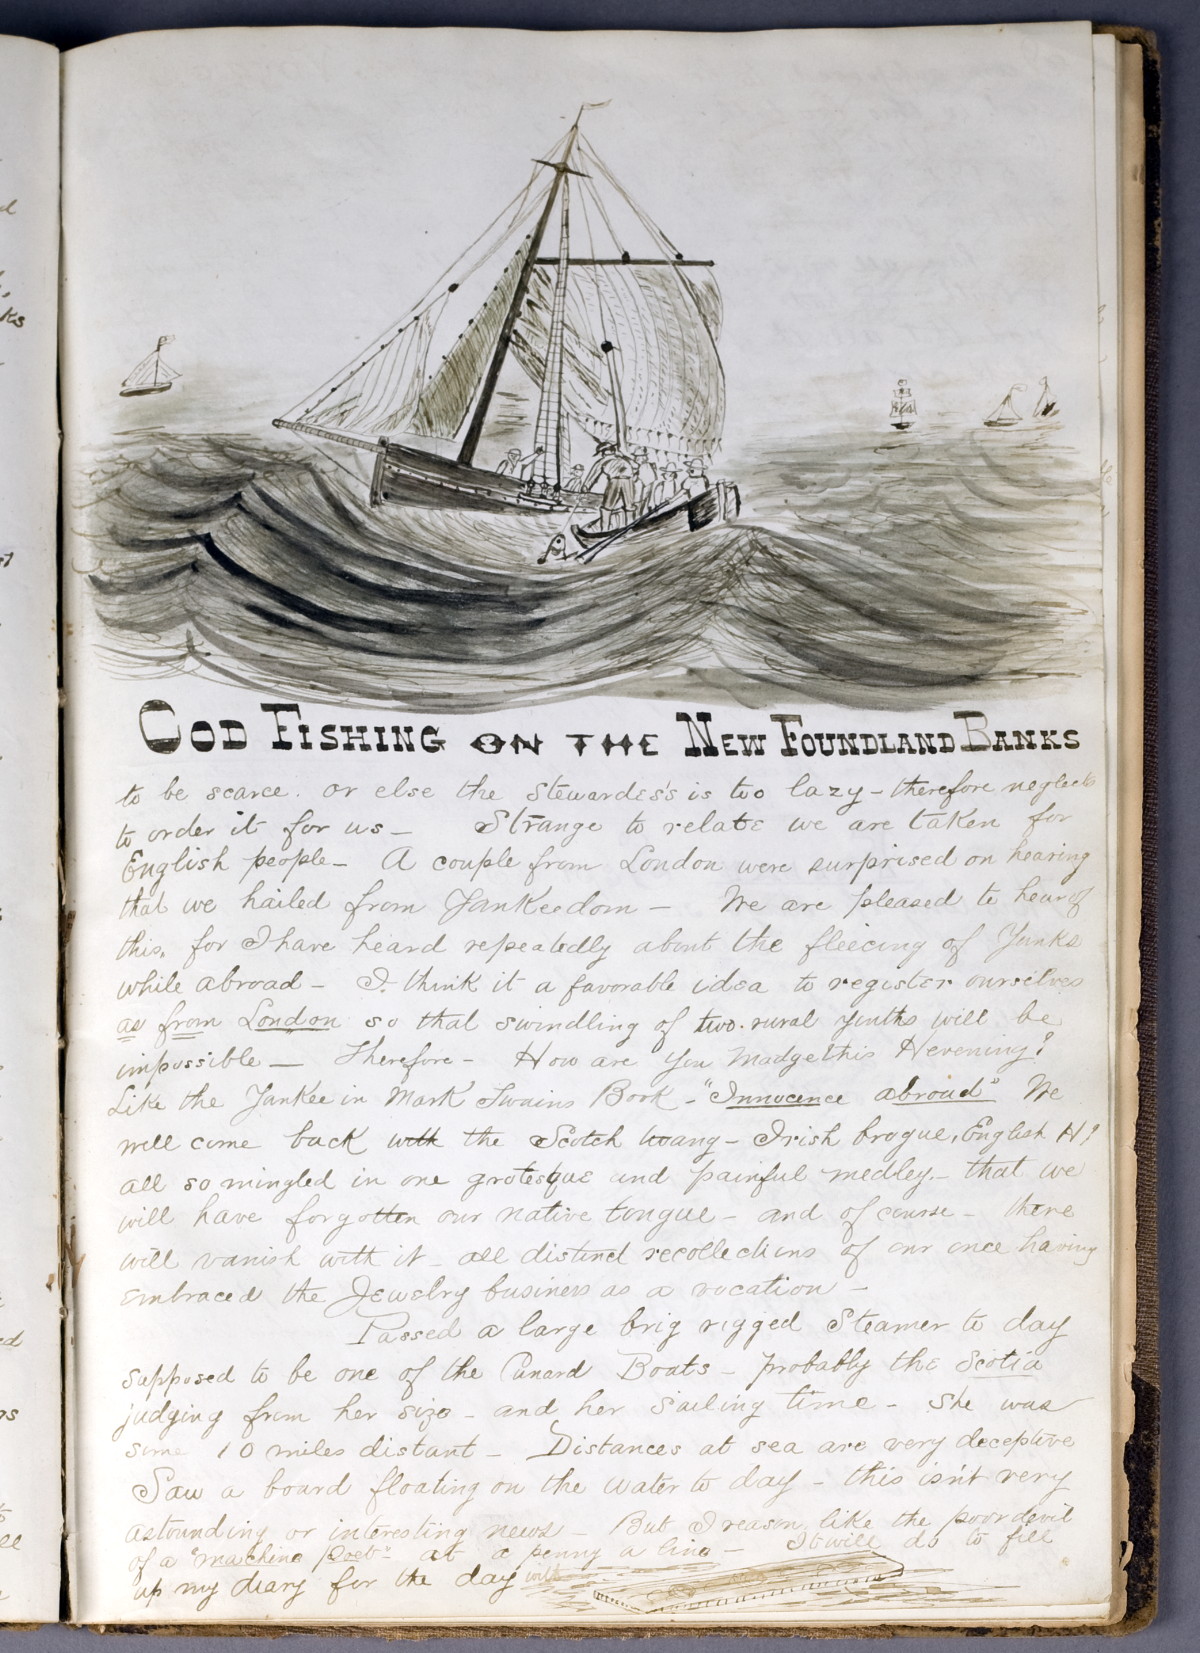 COD FISHING ON THE NEW FOUNDLAND BANKS
to be scarce. or else the Stewardess's is too lazy - therefore neglects
to order it for us - Strange to relate we are taken for
English people - A couple from London were surprised on hearing
that we hailed from Yankeedom - We are pleased to hear of
this, for I have heard repeatedly about the fleecing of Yanks
while abroad - I think it a favorable idea to register ourselves
as from London so that swindling of two rural youths will be
impossible - Therefore - How are you Madge this Hevening?
Like the Yankee in Mark Twains Book - "Innocence abroad" We
will come back with the Scotch twang - Irish brogue, English H?
all so mingled in one grotesque and painful medley - that we
will have forgotten our native tongue - and of course - there
will vanish with it - all distinct recollections of our once having
embraced the Jewelry business as a vocation -
Passed a large brig rigged Steamer to day
supposed to be one of the Cunard Boats - probably the Scotia
judging from her size - and her Sailing time - She was
some 10 miles distant - Distances at sea are very deceptive
Saw a board floating on the water to day - this isn't very
astounding or interesting news - But I reason, like the poor devil
of a "machine poet" at a penny a line - It will do to fill
up my diary for the day with